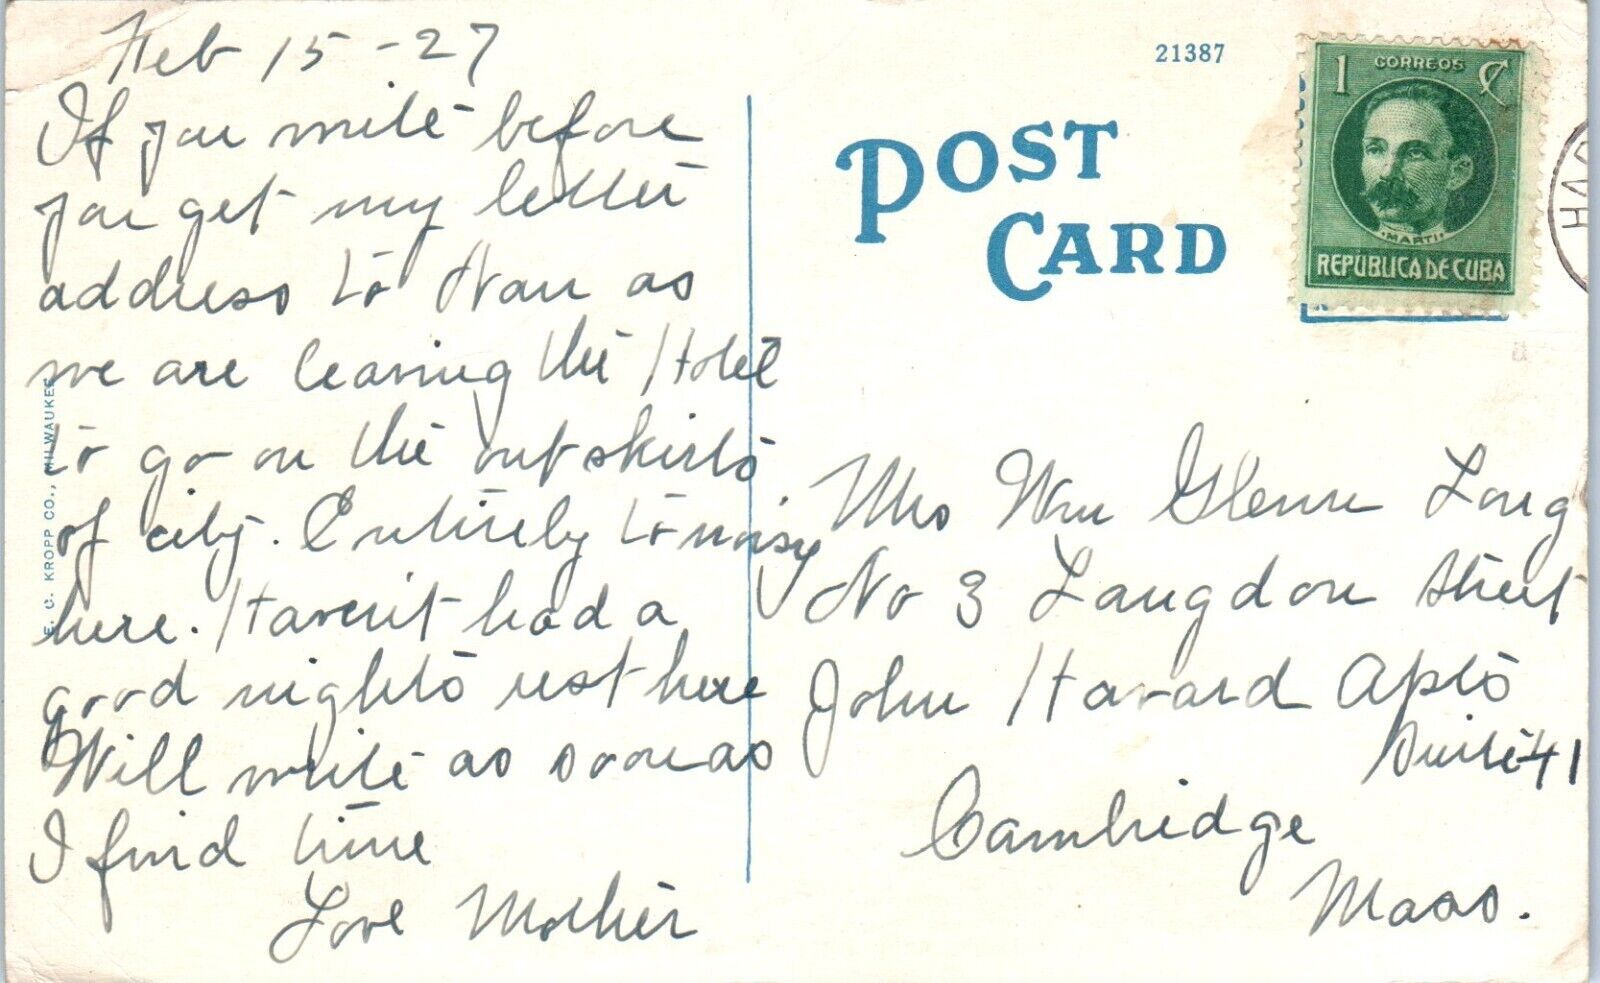 Feb 15-27
If you write before
you get my letter
address to Nan as
we are leaving the Hotel
to go on the outskirts
of city. Entirely to noisy
here. Haven't had a
good nights rest here
Will write as soon as
I find time
Love Mother
E. C. KROPP CO., MILWAUKEE
21387
POST
CARD
1 CORREOS C
MARTI
REPUBLICA DE CUBA
HAV
Mrs Wm Glenn Long
No 3 Langdon Street
John Havard Apts
Suite 41
Cambridge
Mass.